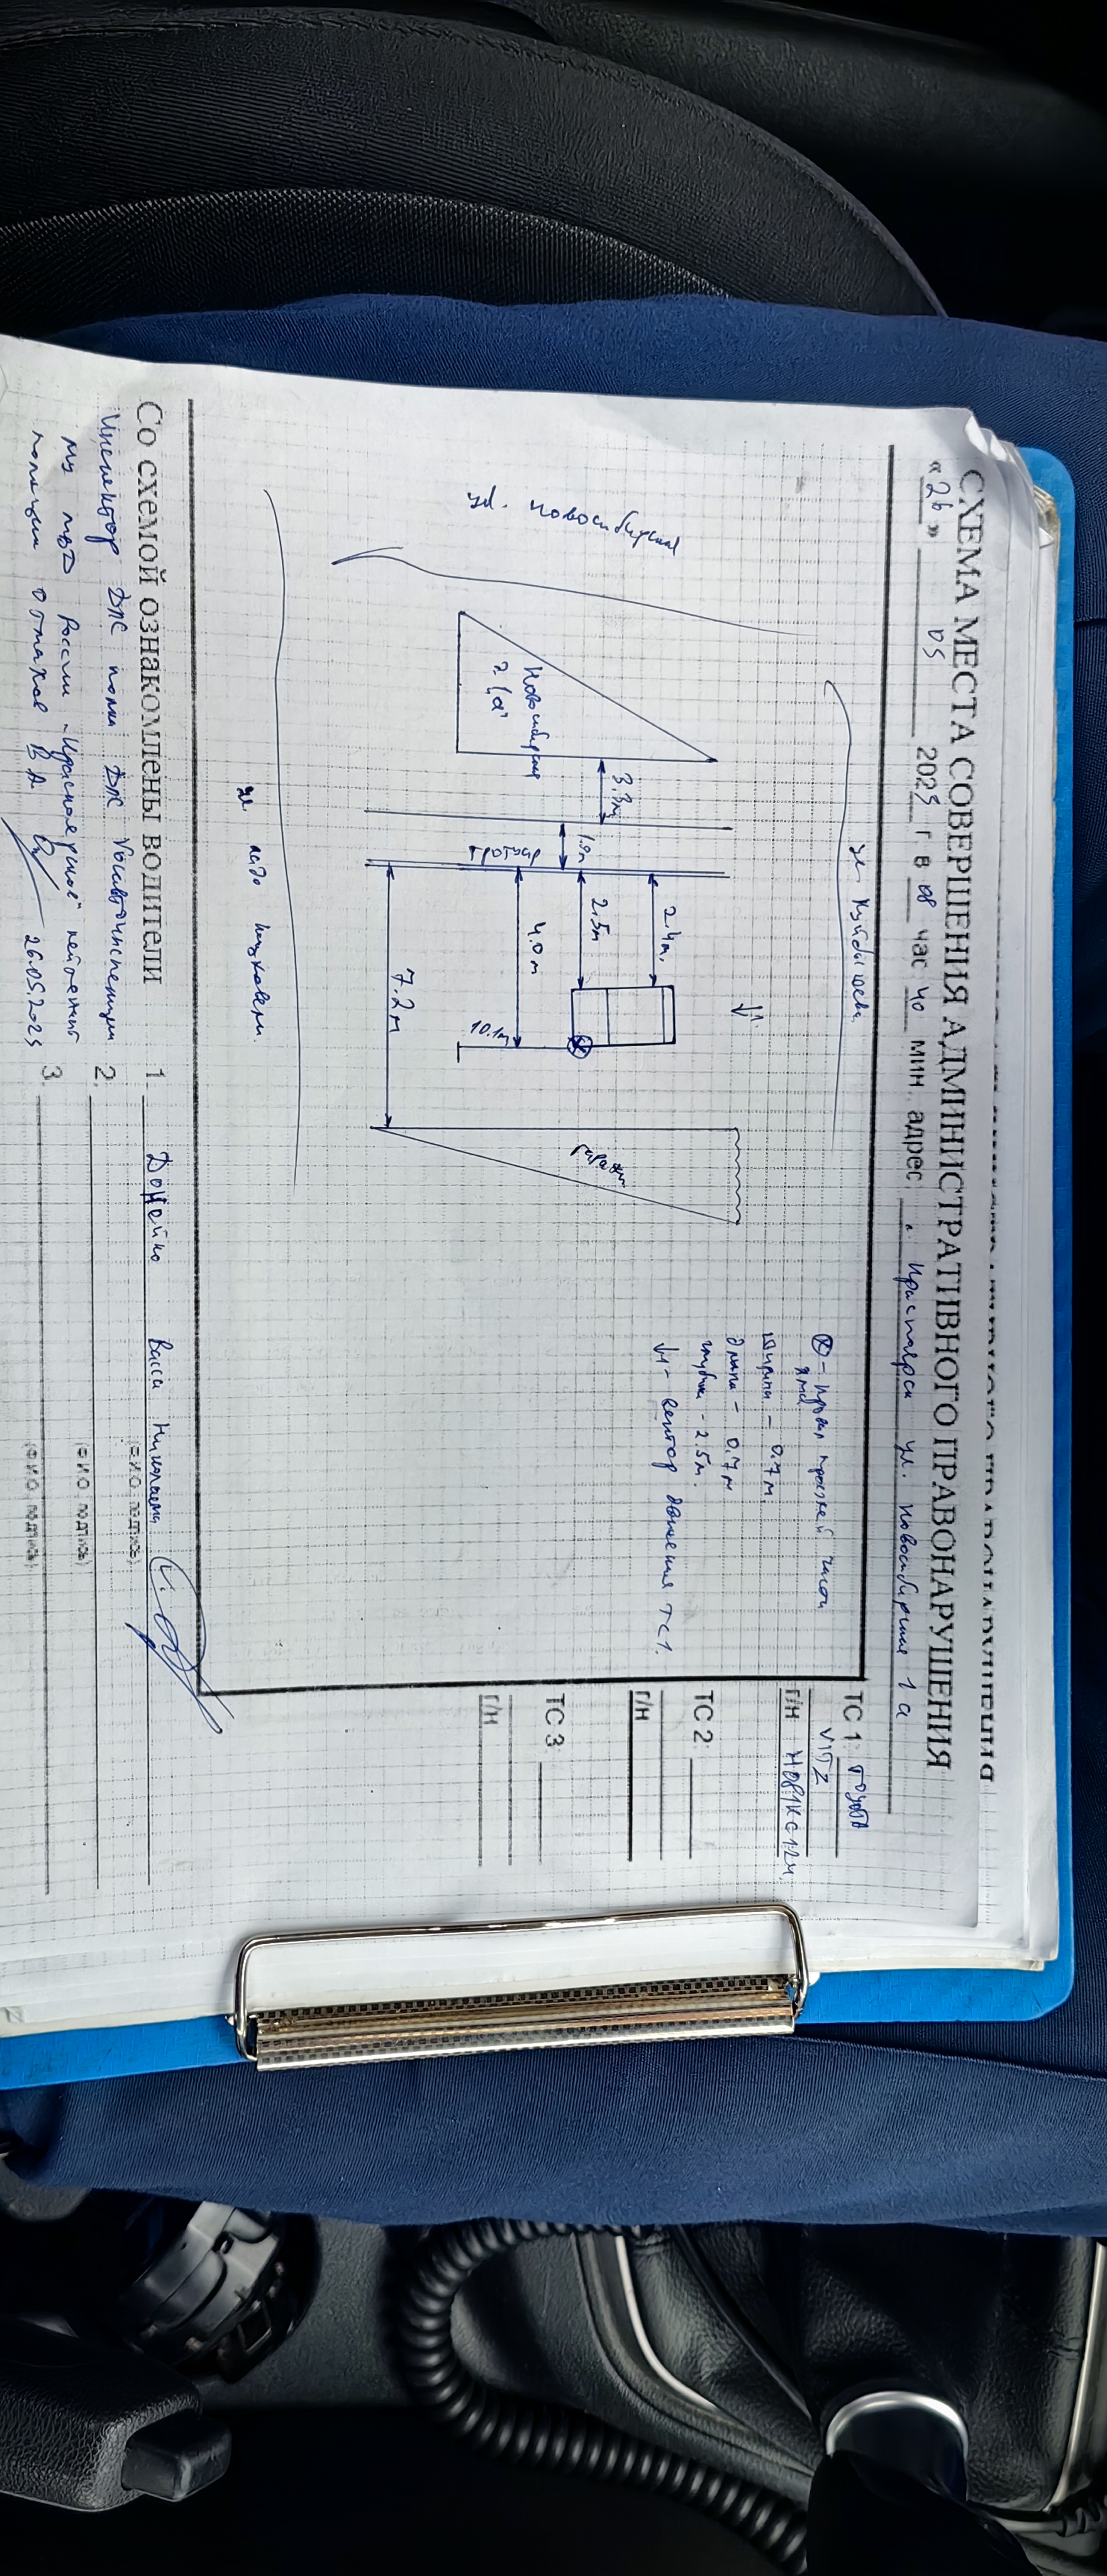 СХЕМА МЕСТА СОВЕРШЕНИЯ АДМИНИСТРАТИВНОГО ПРАВОНАРУШЕНИЯ
«26» 05 2025 г. в 08 час 40 мин. адрес г. Красноярск ул. Новосибирская 1а
ул. Куйбышева
ул. Новосибирская
Новосибирская
1"а"
3.3м
1.9м
тротуар
2.4м.
2.5м
4.0м
10.1м
7.2м
гаражи
ул. Ладо Кецховели.
⊗ - провал проезжей части
яма
ширина - 0.7м.
длина - 0.7м
глубина - 2.5м.
↓1 - вектор движения ТС1.
ТС 1: Тойота
VITZ
Г/Н: Н081КС124
ТС 2:
Г/Н
ТС 3:
Г/Н
Со схемой ознакомлены водители
1. Васса Николаевна
(Ф.И.О. подпись)
2.
(Ф.И.О. подпись)
3.
(Ф.И.О. подпись)
Инспектор ДПС полка ДПС Госавтоинспекции
МУ МВД России "Красноярское" лейтенант
полиции В А 26.05.2025